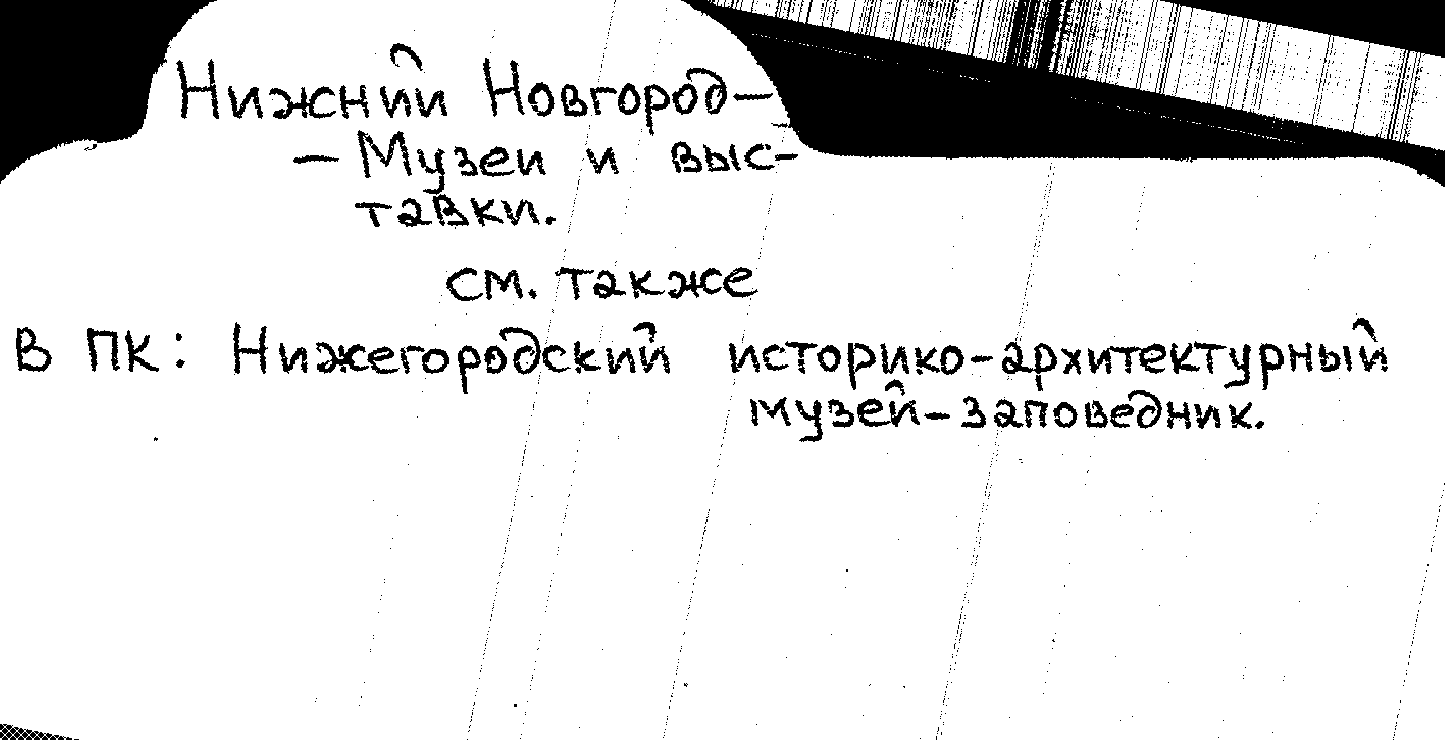 Нижний Новгород—
— Музеи и выс-
тавки.
см. также
В ПК: Нижегородский историко-архитектурный
музей-заповедник.